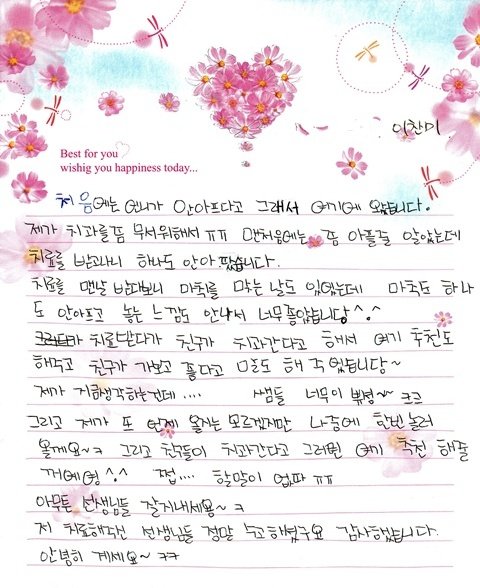 이찬미
Best for you
wishig you happiness today...
처음에는 언니가 안아프다고 그래서 여기에 왔습니다.
제가 치과를좀 무서워해서 ㅠㅠ 맨처음에는 좀 아플줄 알았는데
치료를 받고나니 하나도 안아.팠습니다.
치료를 맨날 받다보니 마취를 맞는 날도 있었는데 마취도 하나
도 안아프고 놓는 느낌도 안나서 너무좋았습니당 ^.^
치료받다가 친구가 치과간다고 해서 여기 추천도
해주고 친구가 가보고 좋다고 말도 해 주었습니당~
제가 지금생각하는건데 .... 쌤들 너무이 뻐성~~ ㅋㅋ
그리고 제가 또 언제 올지는 모르겠지만 나중에 한번 놀러
올게요~ㅋ 그리고 친구들이 치과간다고 그러면 여기 추천 해줄
꺼에영 ^.^ 쩝.... 할말이 업따 ㅠㅠ
아무튼 선생님들 잘지내세용~ ㅋ
저 치료해주신 선생님들 정말 수고하셨구요 감사했습니다.
안녕히 계세요~ ㅋㅋ